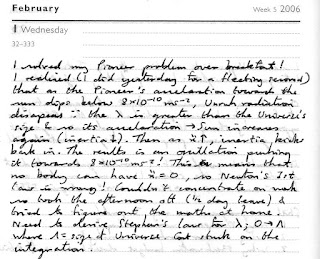 February Week 5 2006
1 Wednesday
32-333
I solved my Pioneer problem over breakfast!
I realised (I did yesterday for a fleeting second)
that as the Pioneer's acceleration towards the
sun dips below 8×10⁻¹⁰ ms⁻², Unruh radiation
disapears ∵ the λ is greater than the Universe's
size & so its acceleration → Sun increases
again (inertia↓). Then as ẍ↑, inertia kicks
back in. The results is an oscillation pushing
it towards 8×10⁻¹⁰ ms⁻²! This means that
no body can have ẍ=0, so Newton's 1st
law is wrong! Couldn't concentrate on work
so took the afternoon off (½ day leave) &
tried to figure out the maths at home.
Need to derive Stephen's law for λ; 0→Λ
where Λ = size of Universe. Got stuck on the
integration.